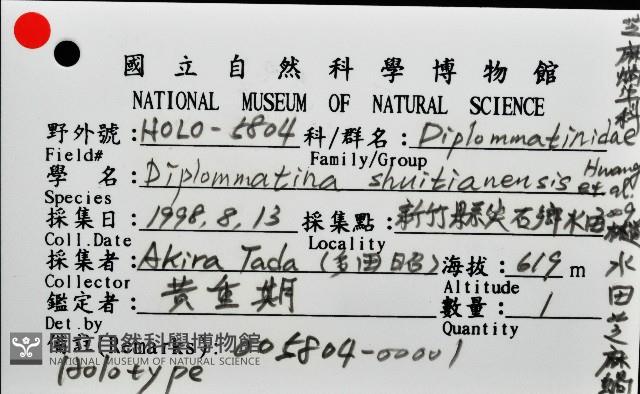 國立自然科學博物館
NATIONAL MUSEUM OF NATURAL SCIENCE
野外號: HOLO-5804 科/群名: Diplommatinidae
Field# Family/Group
學名: Diplommatina shuitianensis Huang et al.
Species
採集日: 1998.8.13 採集點: 新竹縣尖石鄉水田
Coll.Date Locality
採集者: Akira Tada (多田昭) 海拔: 619 m
Collector Altitude
鑑定者: 黃重期 數量: 1
Det.by Quantity
(Remarks): 005804-00001
Holotype
國立自然科學博物館
NATIONAL MUSEUM OF NATURAL SCIENCE
芝麻蝸牛科
水田芝麻蝸